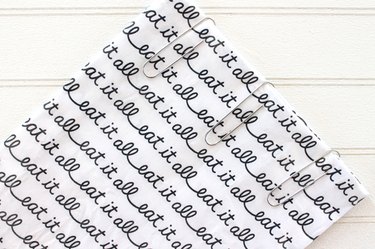 eat it all
eat it all eat it all
eat it all eat it all
eat it all eat it all eat it all
eat it all eat it all eat it all
eat it all eat it all eat it all eat it all
eat it all eat it all eat it all
eat it all eat it all
eat it all